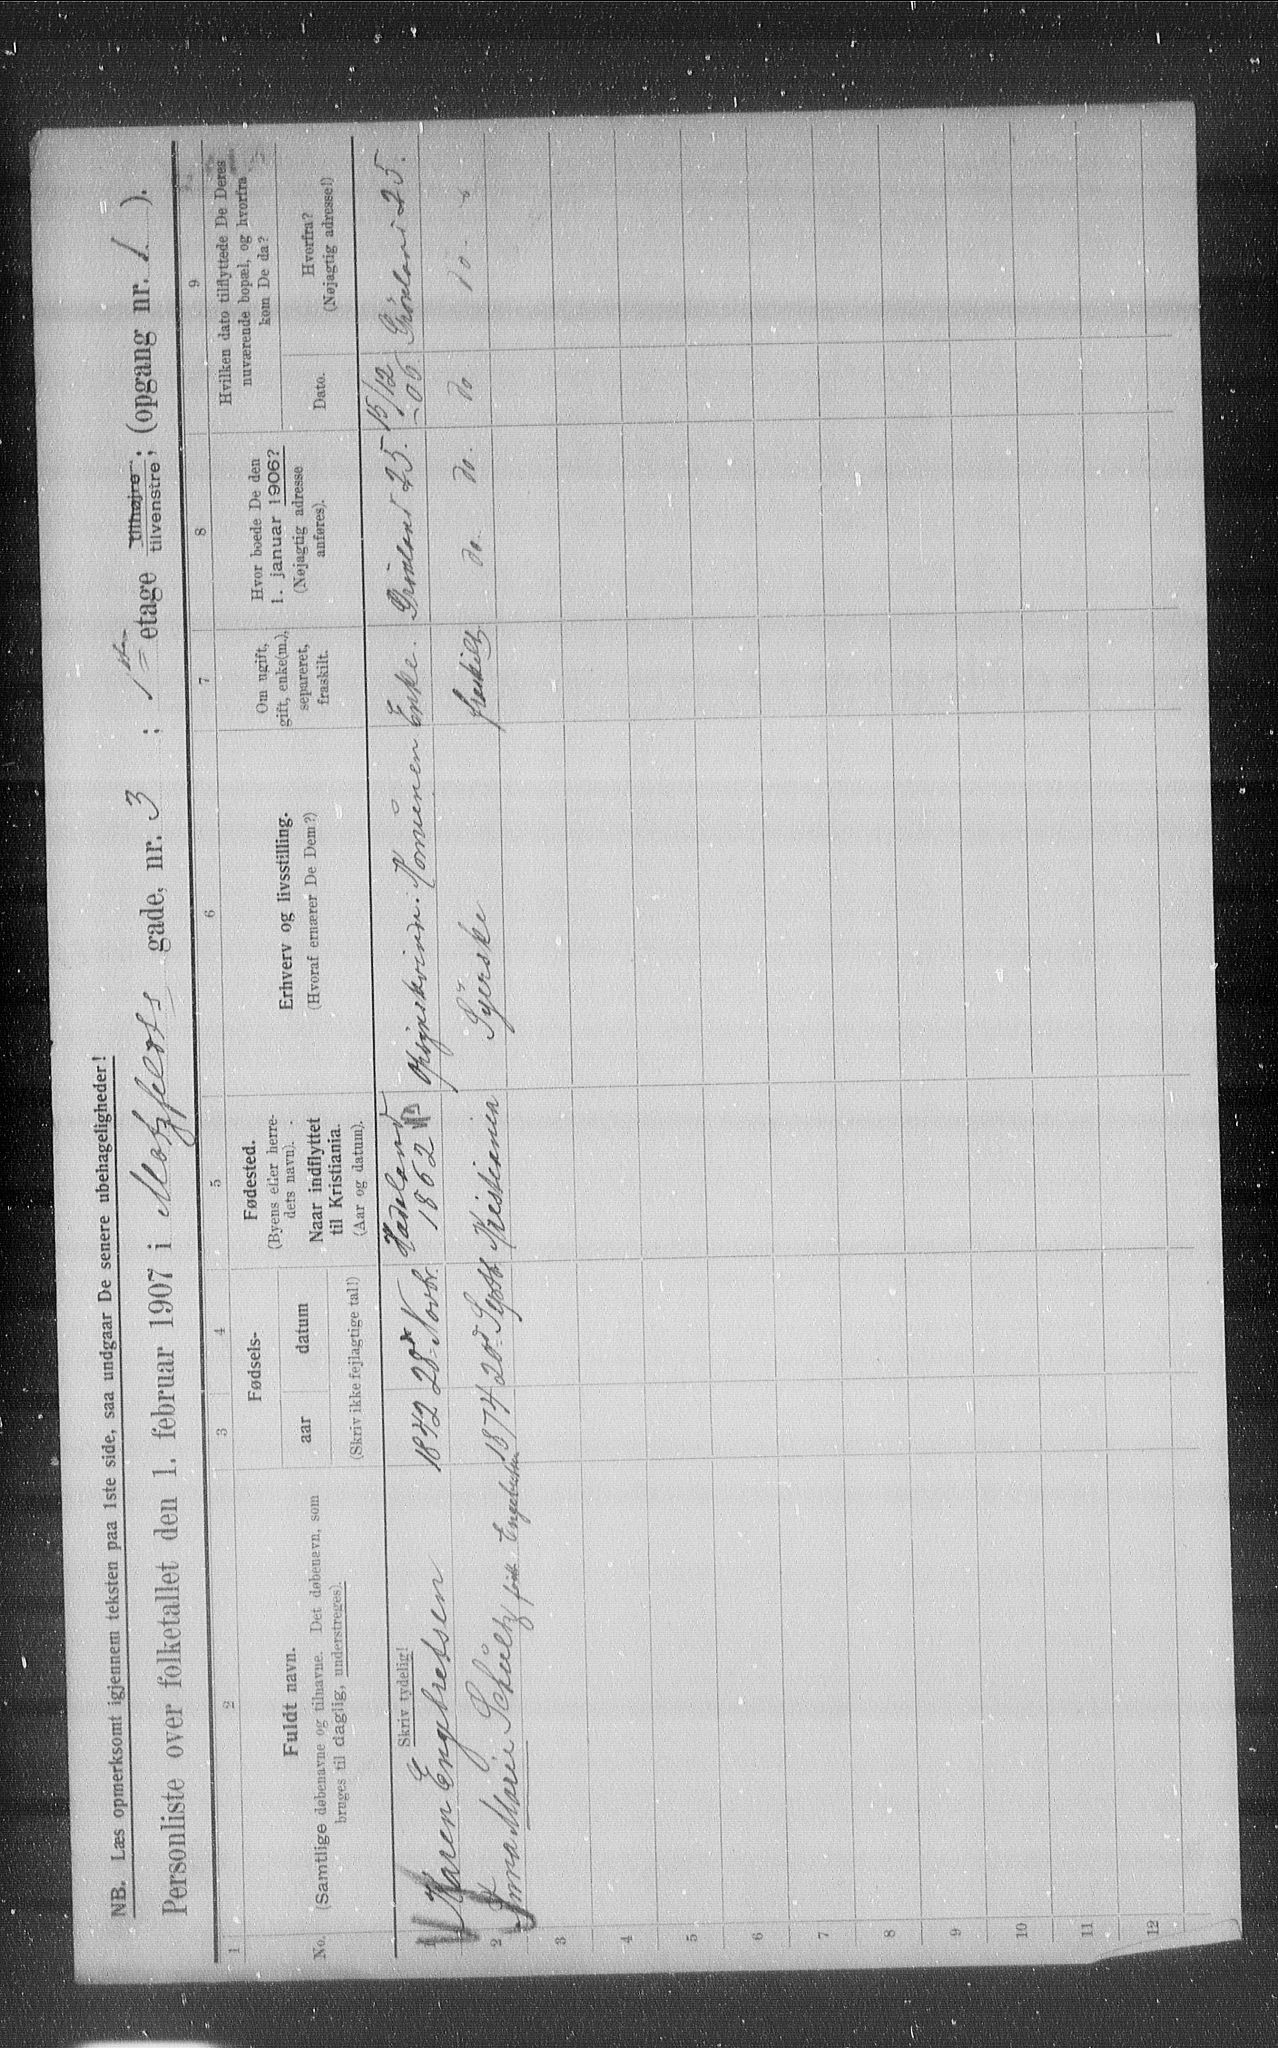 NB. Læs opmerksomt igjennem teksten paa 1ste side, saa undgaar De senere ubehageligheder!
Personliste over folketallet den 1. februar 1907 i Motzfeldts gade, nr. 3 ; 1ste etage tilhøjre, tilvenstre, (opgang nr. 1. ).
1 2 3 4 5 6 7 8 9
No.
Fuldt navn.
(Samtlige døbenavne og tilnavne. Det døbenavn, som
bruges til daglig, understreges).
Skriv tydelig!
Fødsels-
aar datum
(Skriv ikke fejlagtige tal!)
Fødested.
(Byens eller herre-
dets navn).
Naar indflyttet
til Kristiania.
(Aar og datum).
Erhverv og livsstilling.
(Hvoraf ernærer De Dem?)
Om ugift,
gift, enke(m.),
separeret,
fraskilt.
Hvor boede De den
1. januar 1906?
(Nøjagtig adresse
anføres).
Hvilken dato tilflyttede De Deres
nuværende bopæl, og hvorfra
kom De da?
Dato.
Hvorfra?
(Nøjagtig adresse!)
1 Karen Engebretsen 1842 28 Novbr. Hadeland 1862 Enke. Grønland 25. 15/12 -06. Grønland 25.
2 Anna Marie Schültz født Engebretsen 1874 20 Septb Kristiania Syerske fraskilt do. do. do do. "
3
4
5
6
7
8
9
10
11
12